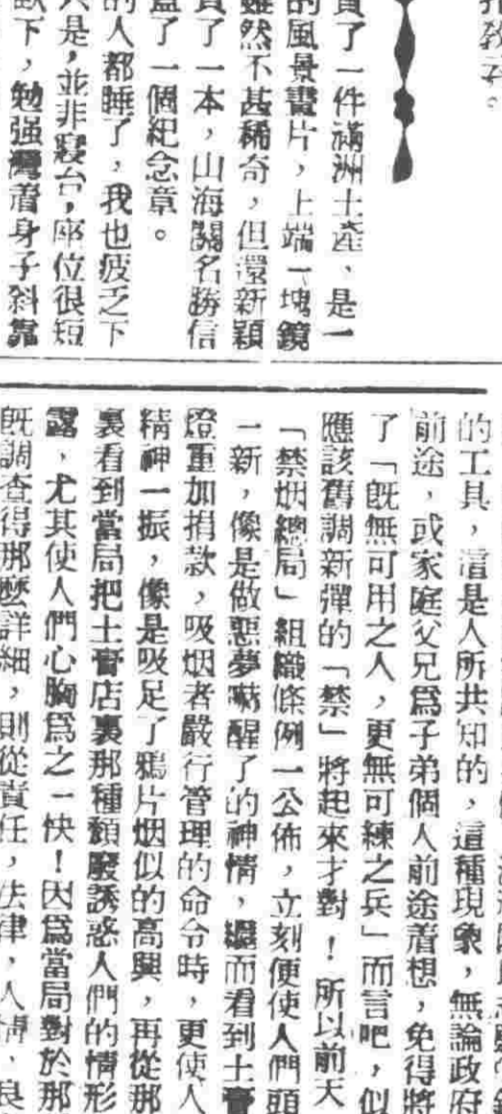 打教子。
買了一件滿洲土產、是一
的風景畫片，上端一塊鏡
雖然不甚稀奇，但還新穎
買了一本，山海關名勝信
蓋了一個紀念章。
的人都睡了，我也疲乏下
只是，並非寢台，座位很短
下，勉强灣着身子斜靠
的工具，這是人所共知的，這種現象，無論政府
前途，或家庭父兄爲子弟個人前途着想，免得將
了「既無可用之人，更無可練之兵」而言吧，似
應該舊調新彈的「禁」將起來才對！所以前天
「禁烟總局」組織條例一公佈，立刻便使人們頭
一新，像是做惡夢嚇醒了的神情，繼而看到土膏
燈重加捐款，吸烟者嚴行管理的命令時，更使人
精神一振，像是吸足了鴉片烟似的高興，再從那
裏看到當局把土膏店裏那種頹廢誘惑人們的情形
露，尤其使人們心胸爲之一快！因爲當局對於那
既調查得那麼詳細，則從責任，法律，人情、良